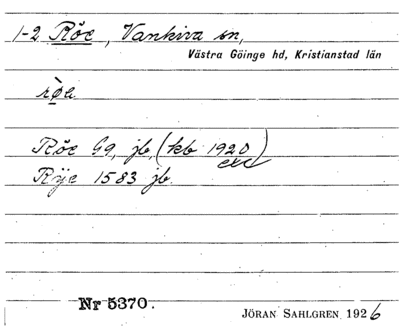 1-2 Röe, Vankiva sn,
Västra Göinge hd, Kristianstad län
Röe G9, jb, (kb 1920)
Röje 1583 jb.
Nr 5370.
JÖRAN SAHLGREN 1926